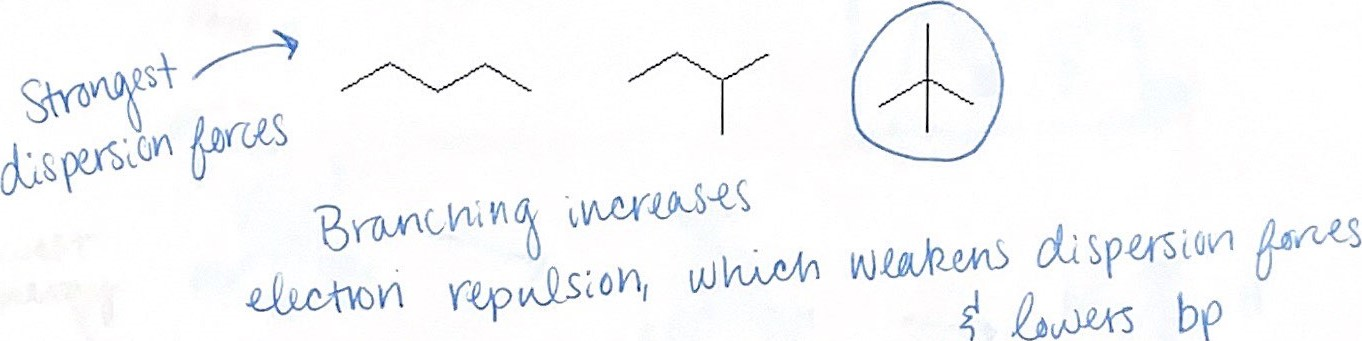 Strongest
dispersion forces
Branching increases
electron repulsion, which weakens dispersion forces
& lowers bp